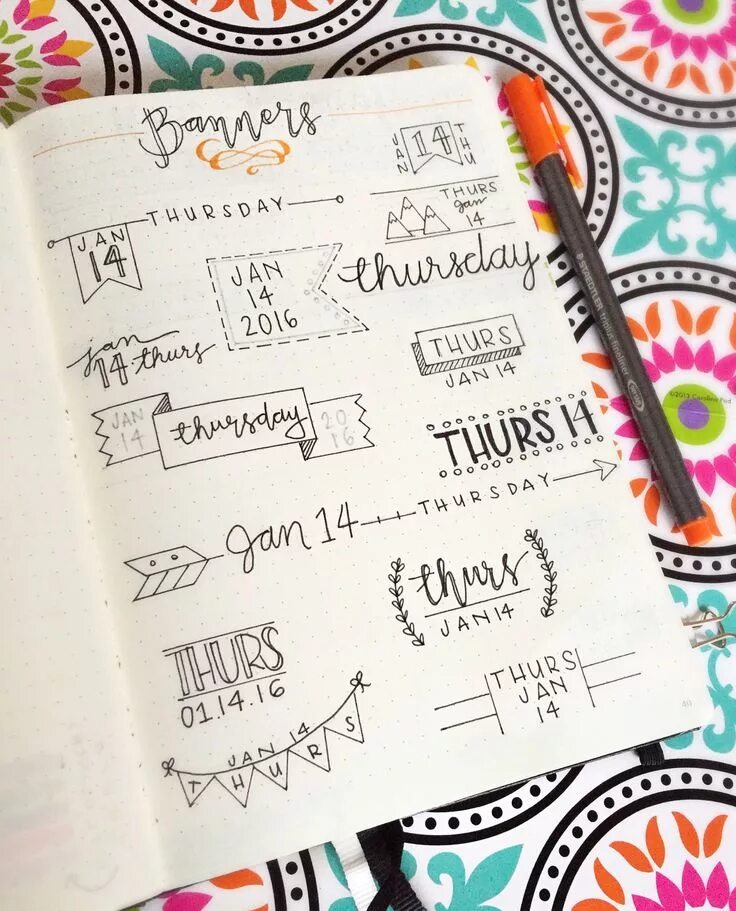 Banners
JAN
14
THU
THURSDAY
JAN
14
THURS
Jan
14
JAN
14
2016
thursday
jan
14 thurs
THURS
JAN 14
JAN
14
thursday
20
16
THURS 14
Jan 14
THURSDAY
thurs
JAN 14
THURS
01.14.16
THURS
JAN
14
JAN 14
THURS
40
STAEDTLER triplus fineliner
©2013 Caroline Pad